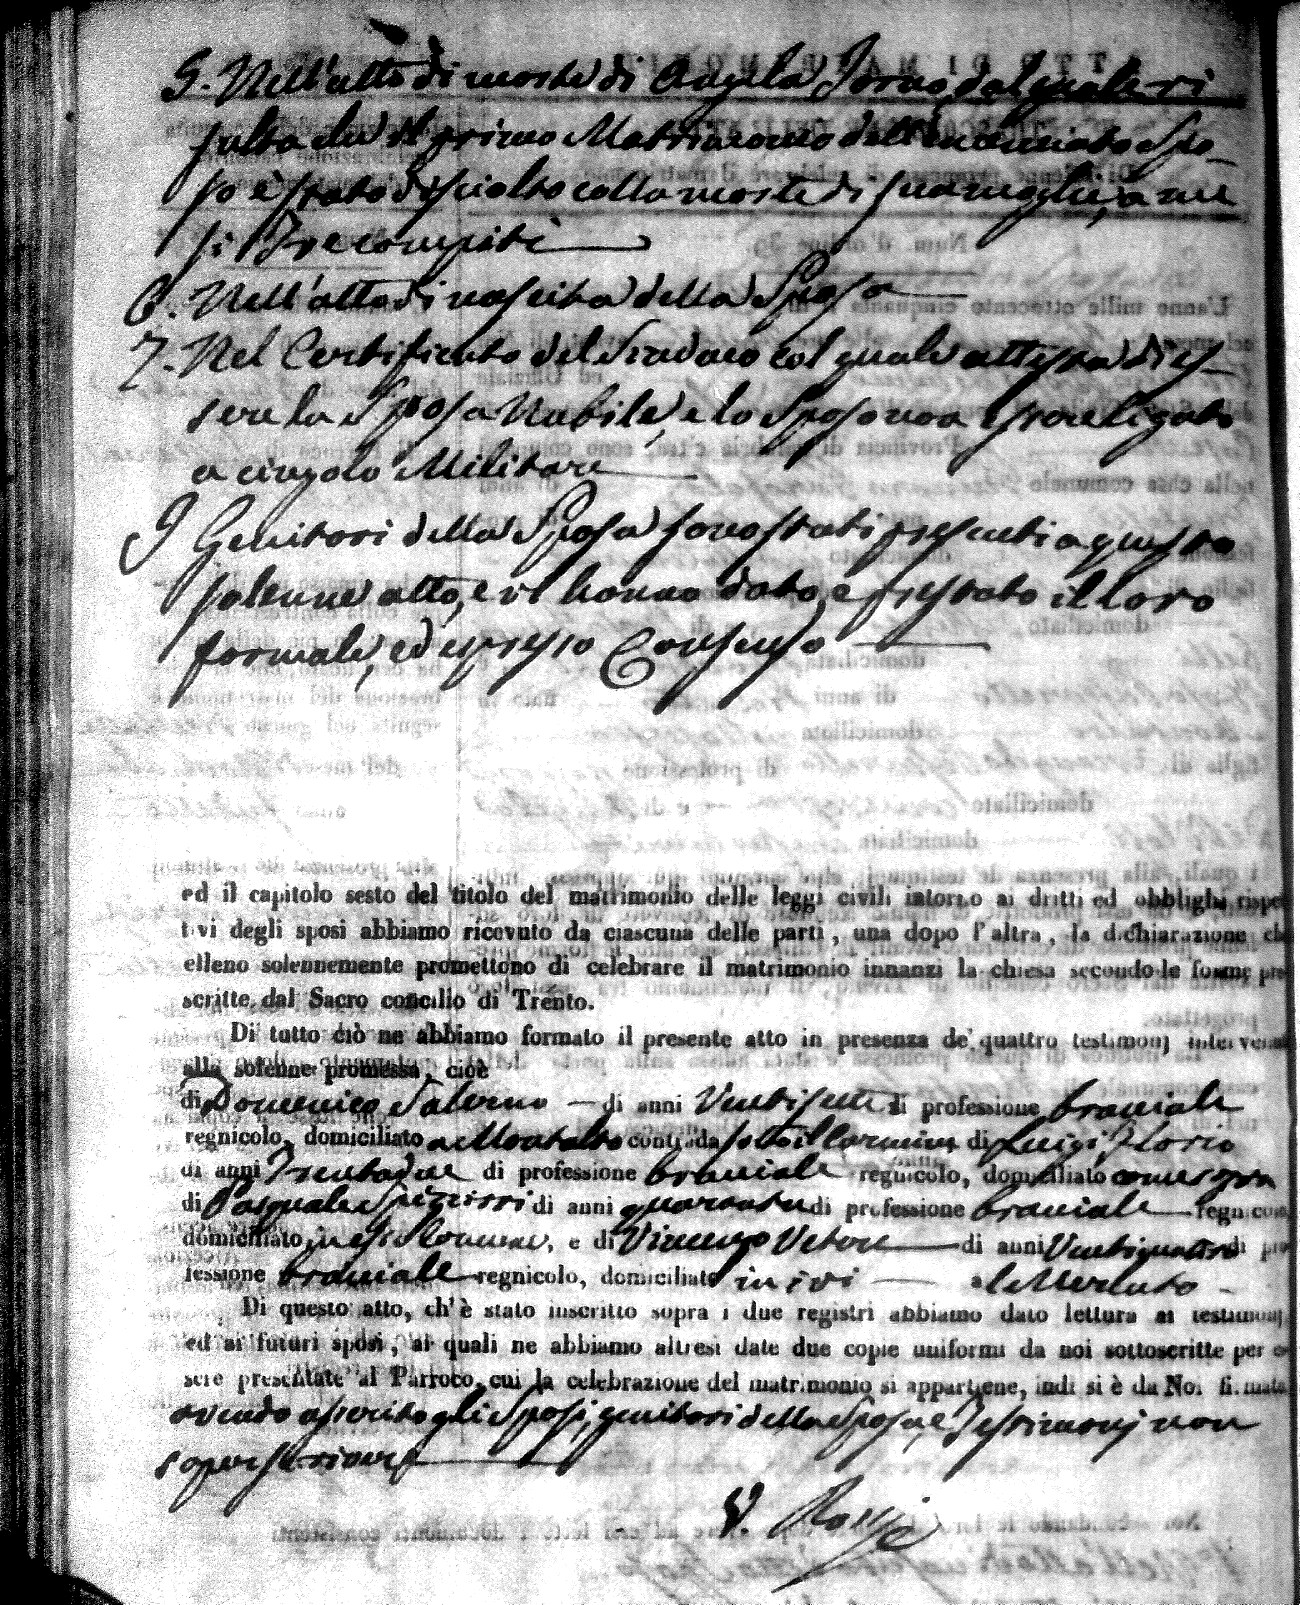 5. Nell'atto di morte di Angela dal quale ri
sulta che il primo Matrimonio dell'enunciato Spo-
so è stato disciolto colla morte di sua moglie, a me
si Tre compiti
6. Nell'atto di nascita della Sposa
7. Nel Certificato del Sindaco col quale attesta di es-
sere la Sposa Nubile, e lo Sposo non essere ligato
a cingolo Militare
I Genitori della Sposa sono stati presenti a questo
solenne atto, e vi hanno dato, e prestato il loro
formale ed espresso Consenso
ed il capitolo sesto del titolo del matrimonio delle leggi civili intorno ai dritti ed obblighi rispe
tivi degli sposi abbiamo ricevuto da ciascuna delle parti, una dopo l'altra, la dichiarazione che
elleno solennemente promettono di celebrare il matrimonio innanzi la chiesa secondo le forme pre
scritte dal Sacro concilio di Trento.
Di tutto ciò ne abbiamo formato il presente atto in presenza de' quattro testimonj intervenuti
alla solenne promessa, cioè
di Domenico Salerno di anni Ventisette di professione bracciale
regnicolo, domiciliato a Montalto contrada sotto il Carmine di Luigi Florio
di anni Trentadue di professione bracciale regnicolo, domiciliato come sopra
di Pasquale Spizzirri di anni quaranta di professione bracciale regnicolo
domiciliato in e di Vincenzo di anni Ventiquattro di pro
fessione bracciale regnicolo, domiciliato in ivi
Di questo atto, ch'è stato inscritto sopra i due registri abbiamo dato lettura ai testimonj
ed ai futuri sposi, ai quali ne abbiamo altresì date due copie uniformi da noi sottoscritte per es
sere presentate al Parroco, cui la celebrazione del matrimonio si appartiene, indi si è da Noi firmato
avendo asserito gli Sposi, genitori della Sposa, e Testimonj non
saper scrivere